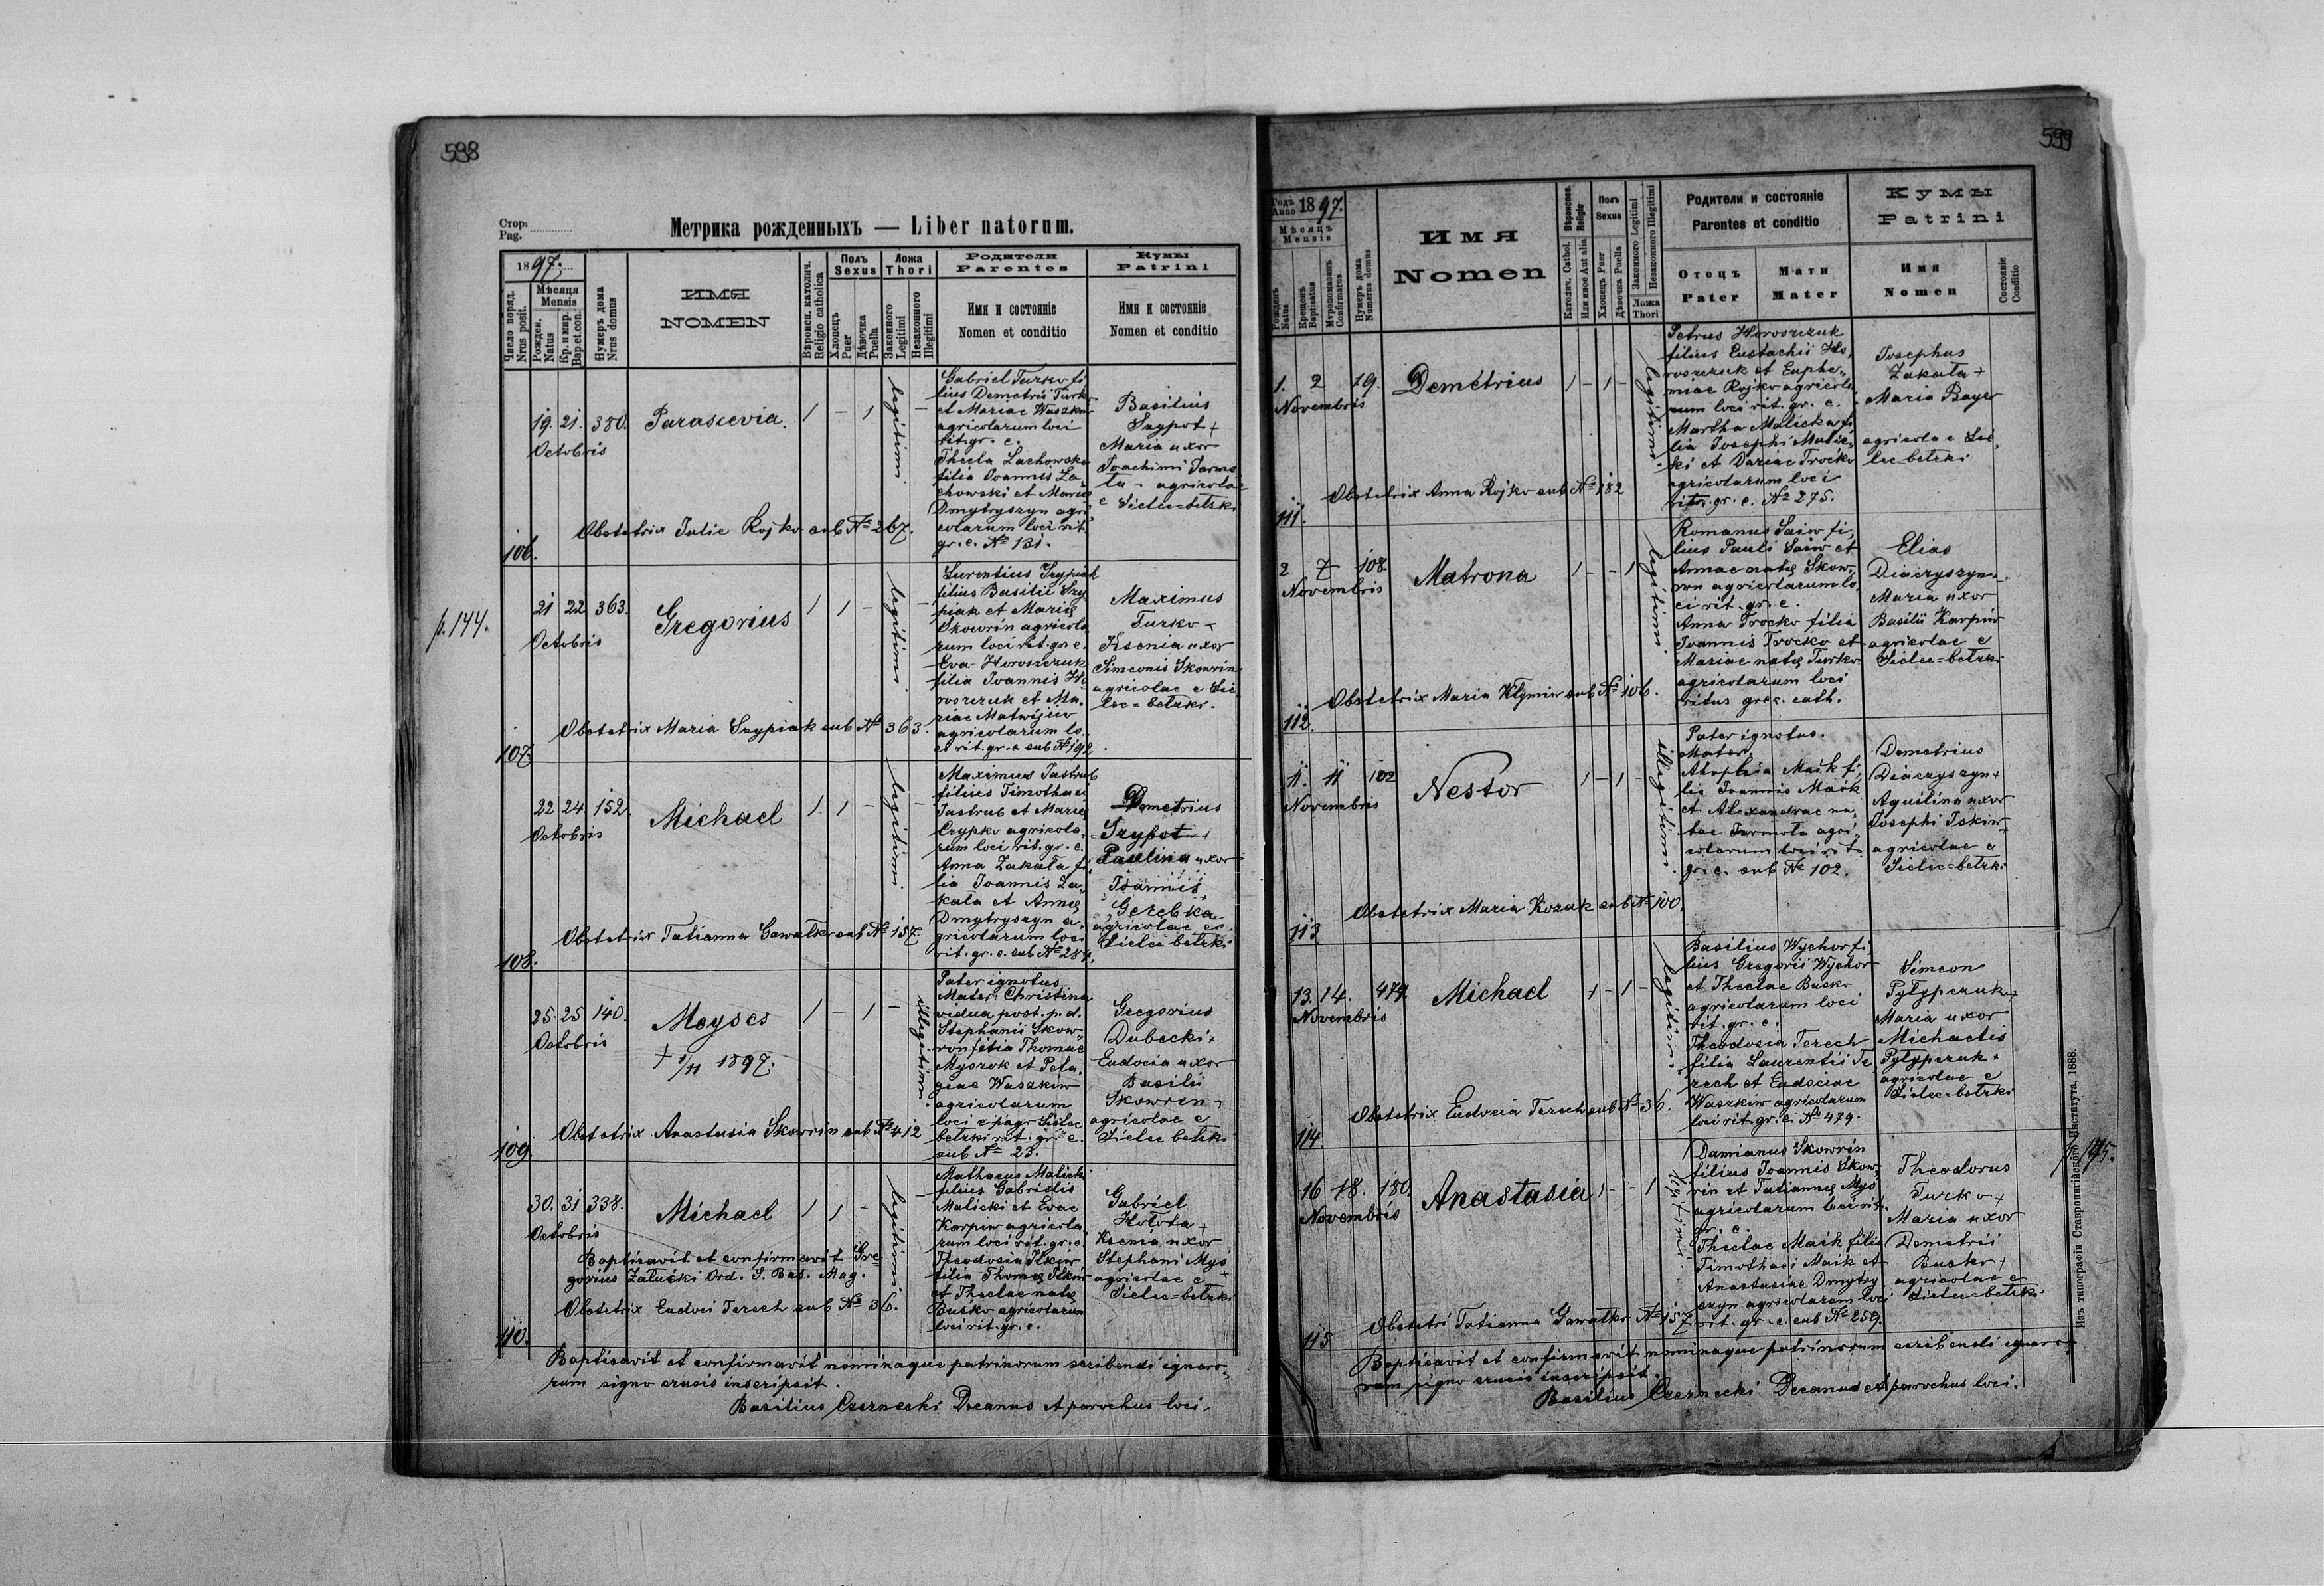 598
Стор. Pag.
Метрика рожденныхъ — Liber natorum.
1897.
Число поряд. Nrus posit.
Мѣсяця Mensis
Рожден. Natus
Кр. и мир. Bap. et con.
Нумеръ дома Nrus domus
ИМЯ NOMEN
Вѣроисп. католич. Religio catholica
Полъ Sexus
Хлопецъ Puer
Дѣвочка Puella
Ложа Thori
Законного Legitimi
Незаконного Illegitimi
Родители Parentes
Имя и состояніе
Nomen et conditio
Кумы Patrini
Имя и состояніе
Nomen et conditio
19. 21. 380. Parascevia. 1 - 1 legitimi -
Octobris
Gabriel Turko fi
lius Demetrii Turko
et Mariae Waszkiw
agricolarum loci
rit. gr. c.
Thecla Lachowska
filia Joannis La-
chowski et Mariae
Dmytryszyn agri
colarum loci rit.
gr. c. № 131.
Basilius
Szypot +
Maria uxor
Joachimi Jarmo
ta + agricolae
e Sielec-bełzki
Obstetrix Julie Rojko sub № 267.
106.
p. 144.
21 22 363. Gregorius 1 1 - legitimi -
Octobris
Lurentius Szypiak
filius Basilii Szy
piak et Mariæ
Skowrin agricola
rum loci rit. gr. c.
Eva Horoszczuk
filia Joannis Ho
roszczuk et Ma-
riae Matwijiw
agricolarum lo-
ci rit. gr. c. sub № 192.
Maximus
Turko +
Ksenia uxor
Simeonis Skowrin
agricolae e Sie
lec-bełzki.
Obstetrix Maria Szypiak sub № 363.
107.
22 24 152. Michael 1 1 - legitimi -
Octobris
Maximus Jastrub
filius Timothaei
Jastrub et Mariæ
Czypko agricola-
rum loci rit. gr. c.
Anna Zakała fi
lia Joannis Za-
kała et Annæ
Dmytryszyn a-
gricolarum loci
rit. gr. c. sub № 284.
Demetrius
Szypot +
Paulina uxor
Joannis
Gerebka
agricolae e
Sielec bełzki
Obstetrix Tatianna Gawałko sub № 157.
108.
25. 25 140. Moyses 1 - 1 - illegitimi.
Octobris
+ 1/11 1897.
Pater ignotus
Mater: Christina
vidua post. p. d.
Stephanii Skow-
ron filia Thomae
Myszok et Pela-
giae Waszkiw
agricolarum
loci e pago Sielec
bełzki rit. gr. c.
sub № 23.
Gregorius
Dubecki +
Eudocia uxor
Basilii
Skowren +
agricolae e
Sielec bełzki
Obstetrix Anastasia Skowrin sub № 412
109.
30. 31 338. Michael 1 1 - legitimi -
Octobris
Mathaeus Malicki
filius Gabrielis
Malicki et Evae
Karpiw agricola
rum loci rit. gr. c.
Theodosia Ilkiw
filia Thomæ Ilkiw
et Theclae natæ
Buśko agricolarum
loci rit. gr. c.
Gabriel
Hołota +
Ksenia uxor
Stephani Myś
agricolae e +
Sielec-bełzki
Baptisavit et confirmavit Gre-
gorius Załuski Ord. S. Bas. Mag.
Obstetrix Eudoci Terech sub № 36.
110.
Baptisavit et confirmavit nominaque patrinorum scribendi ignaro-
rum signo crucis inscripsit.
Basilius Czernecki Decanus et parochus loci.
599
Годъ Anno 1897.
Мѣсяцъ Mensis
Рожденъ Natus
Крещенъ Baptisatus
Мѵропомазанъ Confirmatus
Нумеръ дома Numerus domus
Имя Nomen
Вѣроиспов. Religio
Католич. Cathol.
Или иное Aut alia
Полъ Sexus
Хлопецъ Puer
Дѣвочка Puella
Законного Legitimi
Незаконного Illegitimi
Ложа Thori
Родители и состояніе
Parentes et conditio
Отецъ Pater
Мати Mater
Кумы Patrini
Имя Nomen
Состояніе Conditio
1. 2 19. Demetrius 1 - 1 - legitimi.
Novembris
Petrus Horoszczuk
filius Eustachii Ho,
roszczuk et Euphe-
miae Rojko agricola
rum loci rit. gr. c.
Martha Malicka fi
lia Josephi Malic-
ki et Dariae Trocko
agricolarum loci
rit. gr. c. № 275.
Josephus
Zakała +
Maria Bayer
agricolae Sie
lec-bełzki
Obstetrix Anna Rojko sub № 182
111.
2 7 108. Matrona 1 - - 1 legitimi
Novembris
Romanus Saiw fi,
lius Pauli Saiw et
Annae natæ Skow-
ron agricolarum lo
ci rit. gr. c.
Anna Trocko filia
Joannis Trocko et
Mariae natæ Turko
agricolarum loci
ritus græc. cath.
Elias
Diaczyszyn +
Maria uxor
Basilii Karpiw
agricolae e
Sielec-bełzki
Obstetrix Maria Klymiw sub № 106.
112.
11. 11 102 Nestor 1 - 1 - illegitimi.
Novembris
Pater ignotus.
Mater:
Ahaphia Maik fi,
lia Joannis Maik
et Alexandrae na-
tae Jarmoła agri-
colarum loci rit.
gr. c. sub № 102.
Demetrius
Diaczyszyn +
Aquilina uxor
Josephi Iskiw +
agricolae e
Sielec-bełzki
Obstetrix Maria Kozak sub № 100.
113
13. 14. 479. Michael 1 - 1 - legitimi
Novembris
Basilius Wychor fi,
lius Gregorii Wychor
et Theclae Busko
agricolarum loci
rit. gr. c.
Theodosia Terech
filia Laurentii Te
rech et Eudociae
Waszkiw agricolarum
loci rit. gr. c. № 479.
Simeon
Pyłypczuk +
Maria uxor
Michaelis
Pyłypczuk +
agricolae e
Sielec-bełzki
Obstetrix Eudocia Terech sub № 36.
114.
p. 145.
16 18. 180. Anastasia 1 - - 1 legitimi
Novembris
Damianus Skowrin
filius Joannis Skow-
rin et Tatiannæ Myś
agricolarum loci rit.
gr. c.
Theclae Maik filia
Timothaei Maik et
Anastasiae Dmytry
szyn agricolarum loci
rit. gr. c. sub № 259.
Theodorus
Turko +
Maria uxor
Demetrii
Busko +
agricolae e
Sielec-bełzki
Obstetri Tatianna Gawałko № 157
115
Baptisavit et confirmavit nominaque patrinorum scribendi ignaro-
rum signo crucis inscripsit.
Basilius Czernecki Decanus et parochus loci.
Изъ типографіи Ставропигійского Института. 1888.